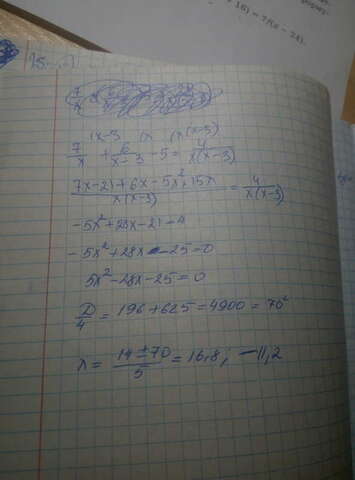 + 16) = 7(x - 28).
(x-3 (x (x(x-3)
7/x + 6/(x-3) - 5 = 4/(x(x-3))
(7x-21+6x-5x²+15x)/(x(x-3)) = 4/(x(x-3))
-5x²+28x-21=4
-5x²+28x-25=0
5x²-28x-25=0
D/4 = 196+625=4900=70²
x = (14±70)/5 = 16,8, -11,2